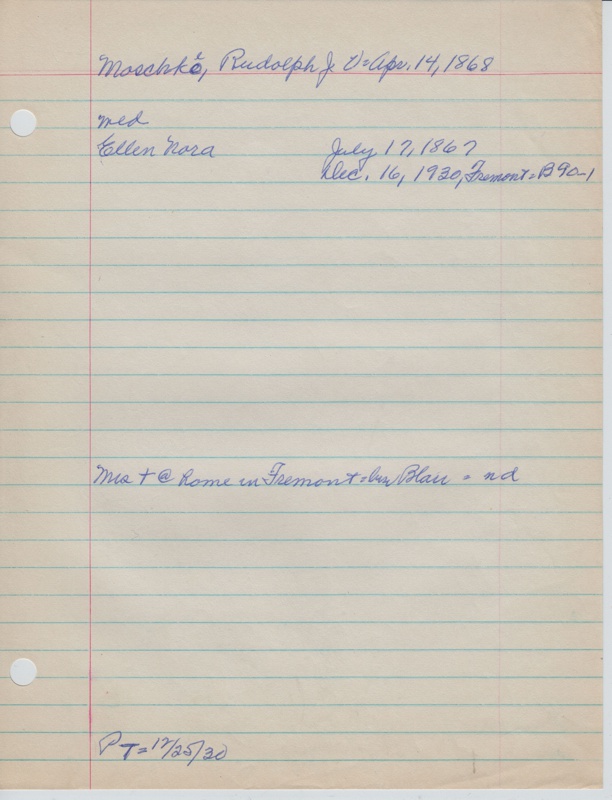 Moschke, Rudolph J. V=Apr. 14, 1868
med
Ellen Nora July 17, 1867
Dec. 16, 1930, Fremont=B90-1
Mrs + @ home in Fremont=bur Blair = nd
PT=12/25/30